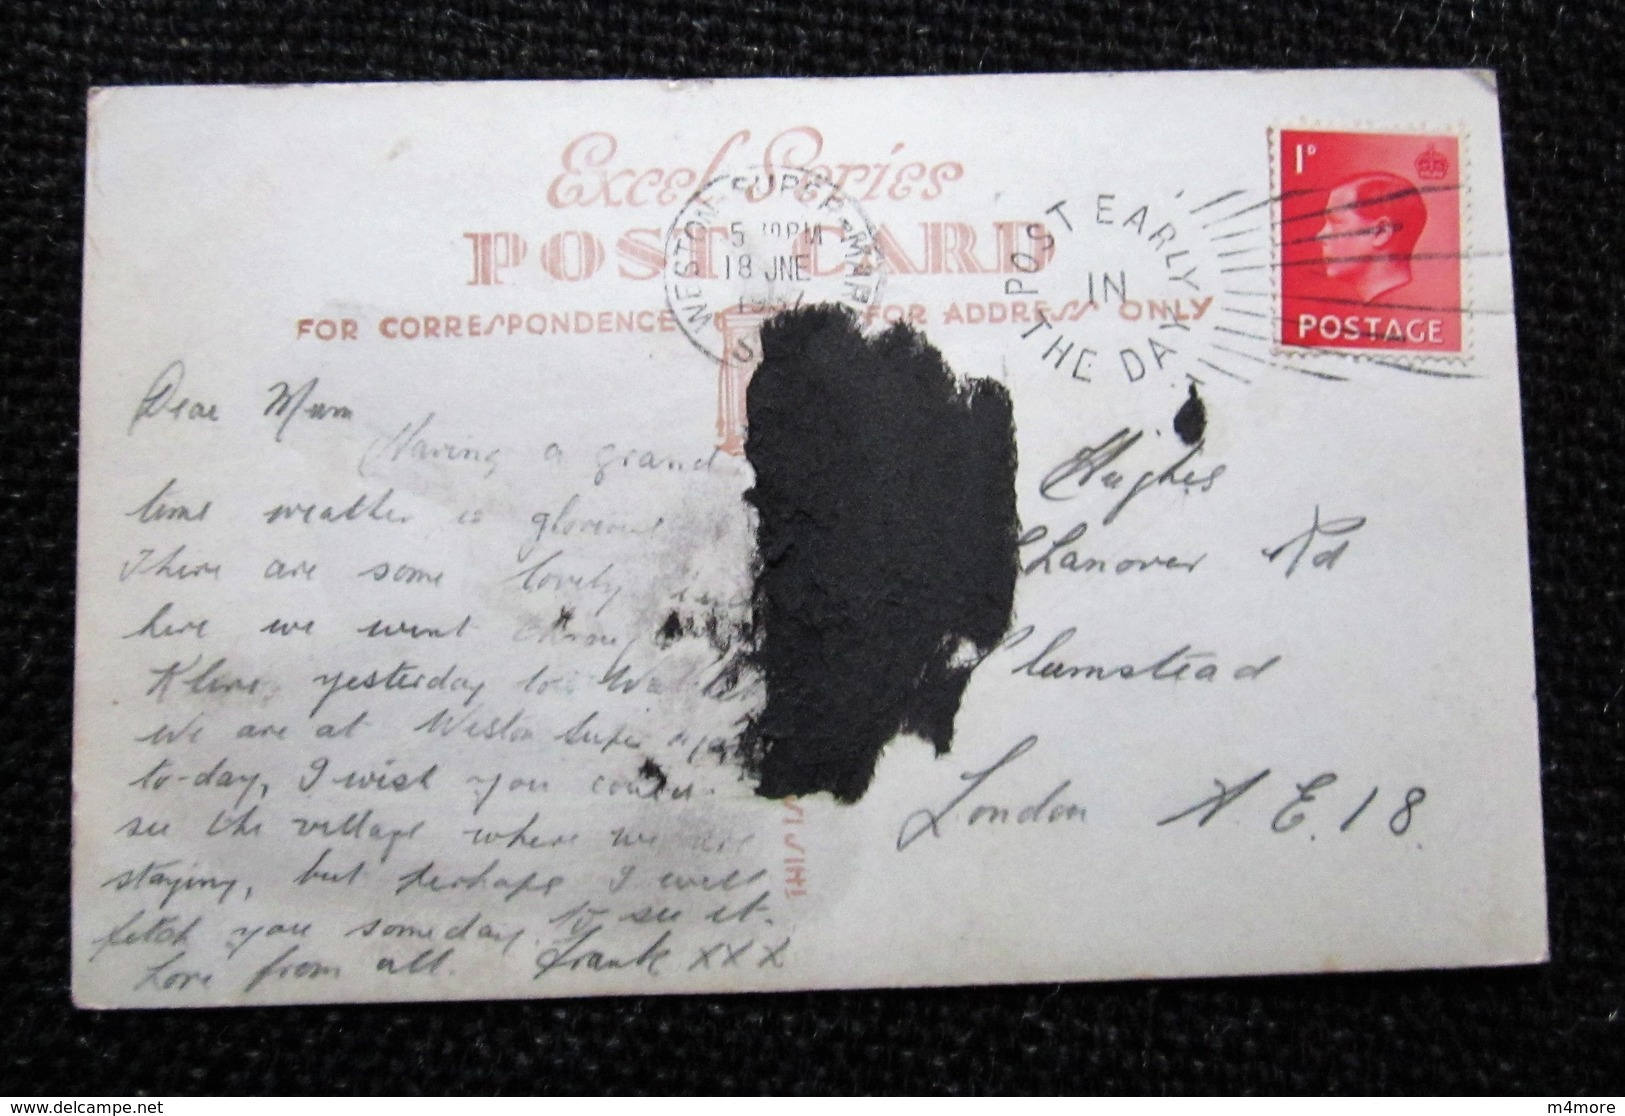 Excel Series
POST CARD
FOR CORRESPONDENCE
FOR ADDRESS ONLY
WESTON SUPER-MARE
PM
18 JNE
POST EARLY
IN
THE DAY
1D
POSTAGE
Dear Mum
Having a grand
time weather is
There are some lovely
here we went
yesterday to
We are at Weston Super
to-day, I wish you could
see the village where we are
staying, but perhaps I will
fetch you someday to see it.
Love from all. Frank XXX
Hughes
Llanover Rd
Plumstead
London S.E.18.
THIS IS
m4more